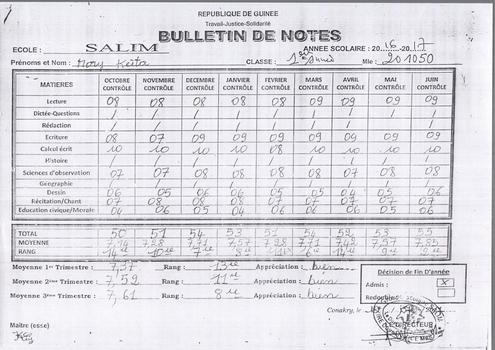 REPUBLIQUE DE GUINEE
Travail-Justice-Solidarité
BULLETIN DE NOTES
ECOLE : SALIM ANNEE SCOLAIRE : 2016-2017
Prénoms et Nom : Mory Keita CLASSE : 1ère Année Mle : 201050
MATIERES OCTOBRE CONTRÔLE NOVEMBRE CONTRÔLE DECEMBRE CONTRÔLE JANVIER CONTRÔLE FEVRIER CONTRÔLE MARS CONTRÔLE AVRIL CONTRÔLE MAI CONTRÔLE JUIN CONTRÔLE
Lecture 08 08 08 08 08 09 09 09 09
Dictée-Questions / / / / / / / / /
Rédaction / / / / / / / / /
Ecriture 08 07 09 09 09 09 09 09 09
Calcul écrit 10 10 10 08 08 10 10 10 10
Histoire / / / / / / / / /
Sciences d'observation 07 07 08 08 08 07 07 08 08
Géographie / / / / / / / / /
Dessin 06 05 06 06 05 05 04 05 06
Récitation/Chant 07 08 08 08 07 07 07 07 07
Education civique/Morale 04 06 05 04 06 06 06 05 06
TOTAL 50 51 54 53 51 54 52 53 55
MOYENNE 7,14 7,28 7,71 7,57 7,28 7,71 7,42 7,57 7,85
RANG
Moyenne 1er Trimestre : 7,37 Rang : 13è Appréciation : bien
Moyenne 2ème Trimestre : 7,52 Rang : 11è Appréciation : bien
Moyenne 3ème Trimestre : 7,61 Rang : 8è Appréciation : bien
Décision de Fin d'Année
Admis : X
Redouble
Conakry, le
Maitre (esse)
LE DIRECTEUR